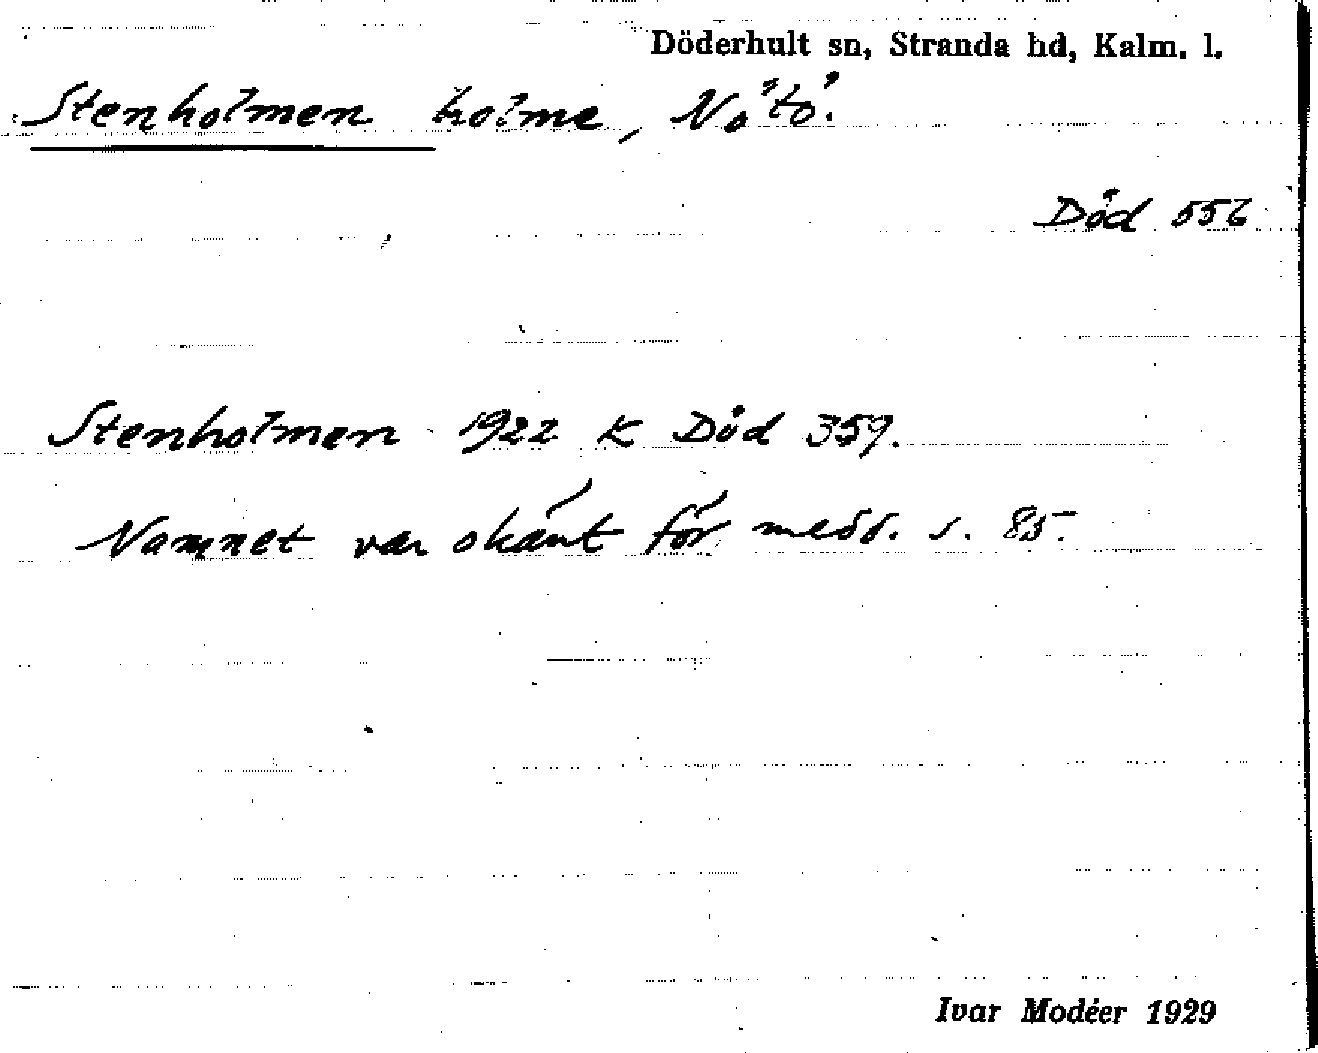 Döderhult sn, Stranda hd, Kalm. l.
Stenholmen holme, Nötö.
Död 556
Stenholmen 1922 K Död 359.
Namnet var okänt för medd. s. 85.
Ivar Modéer 1929